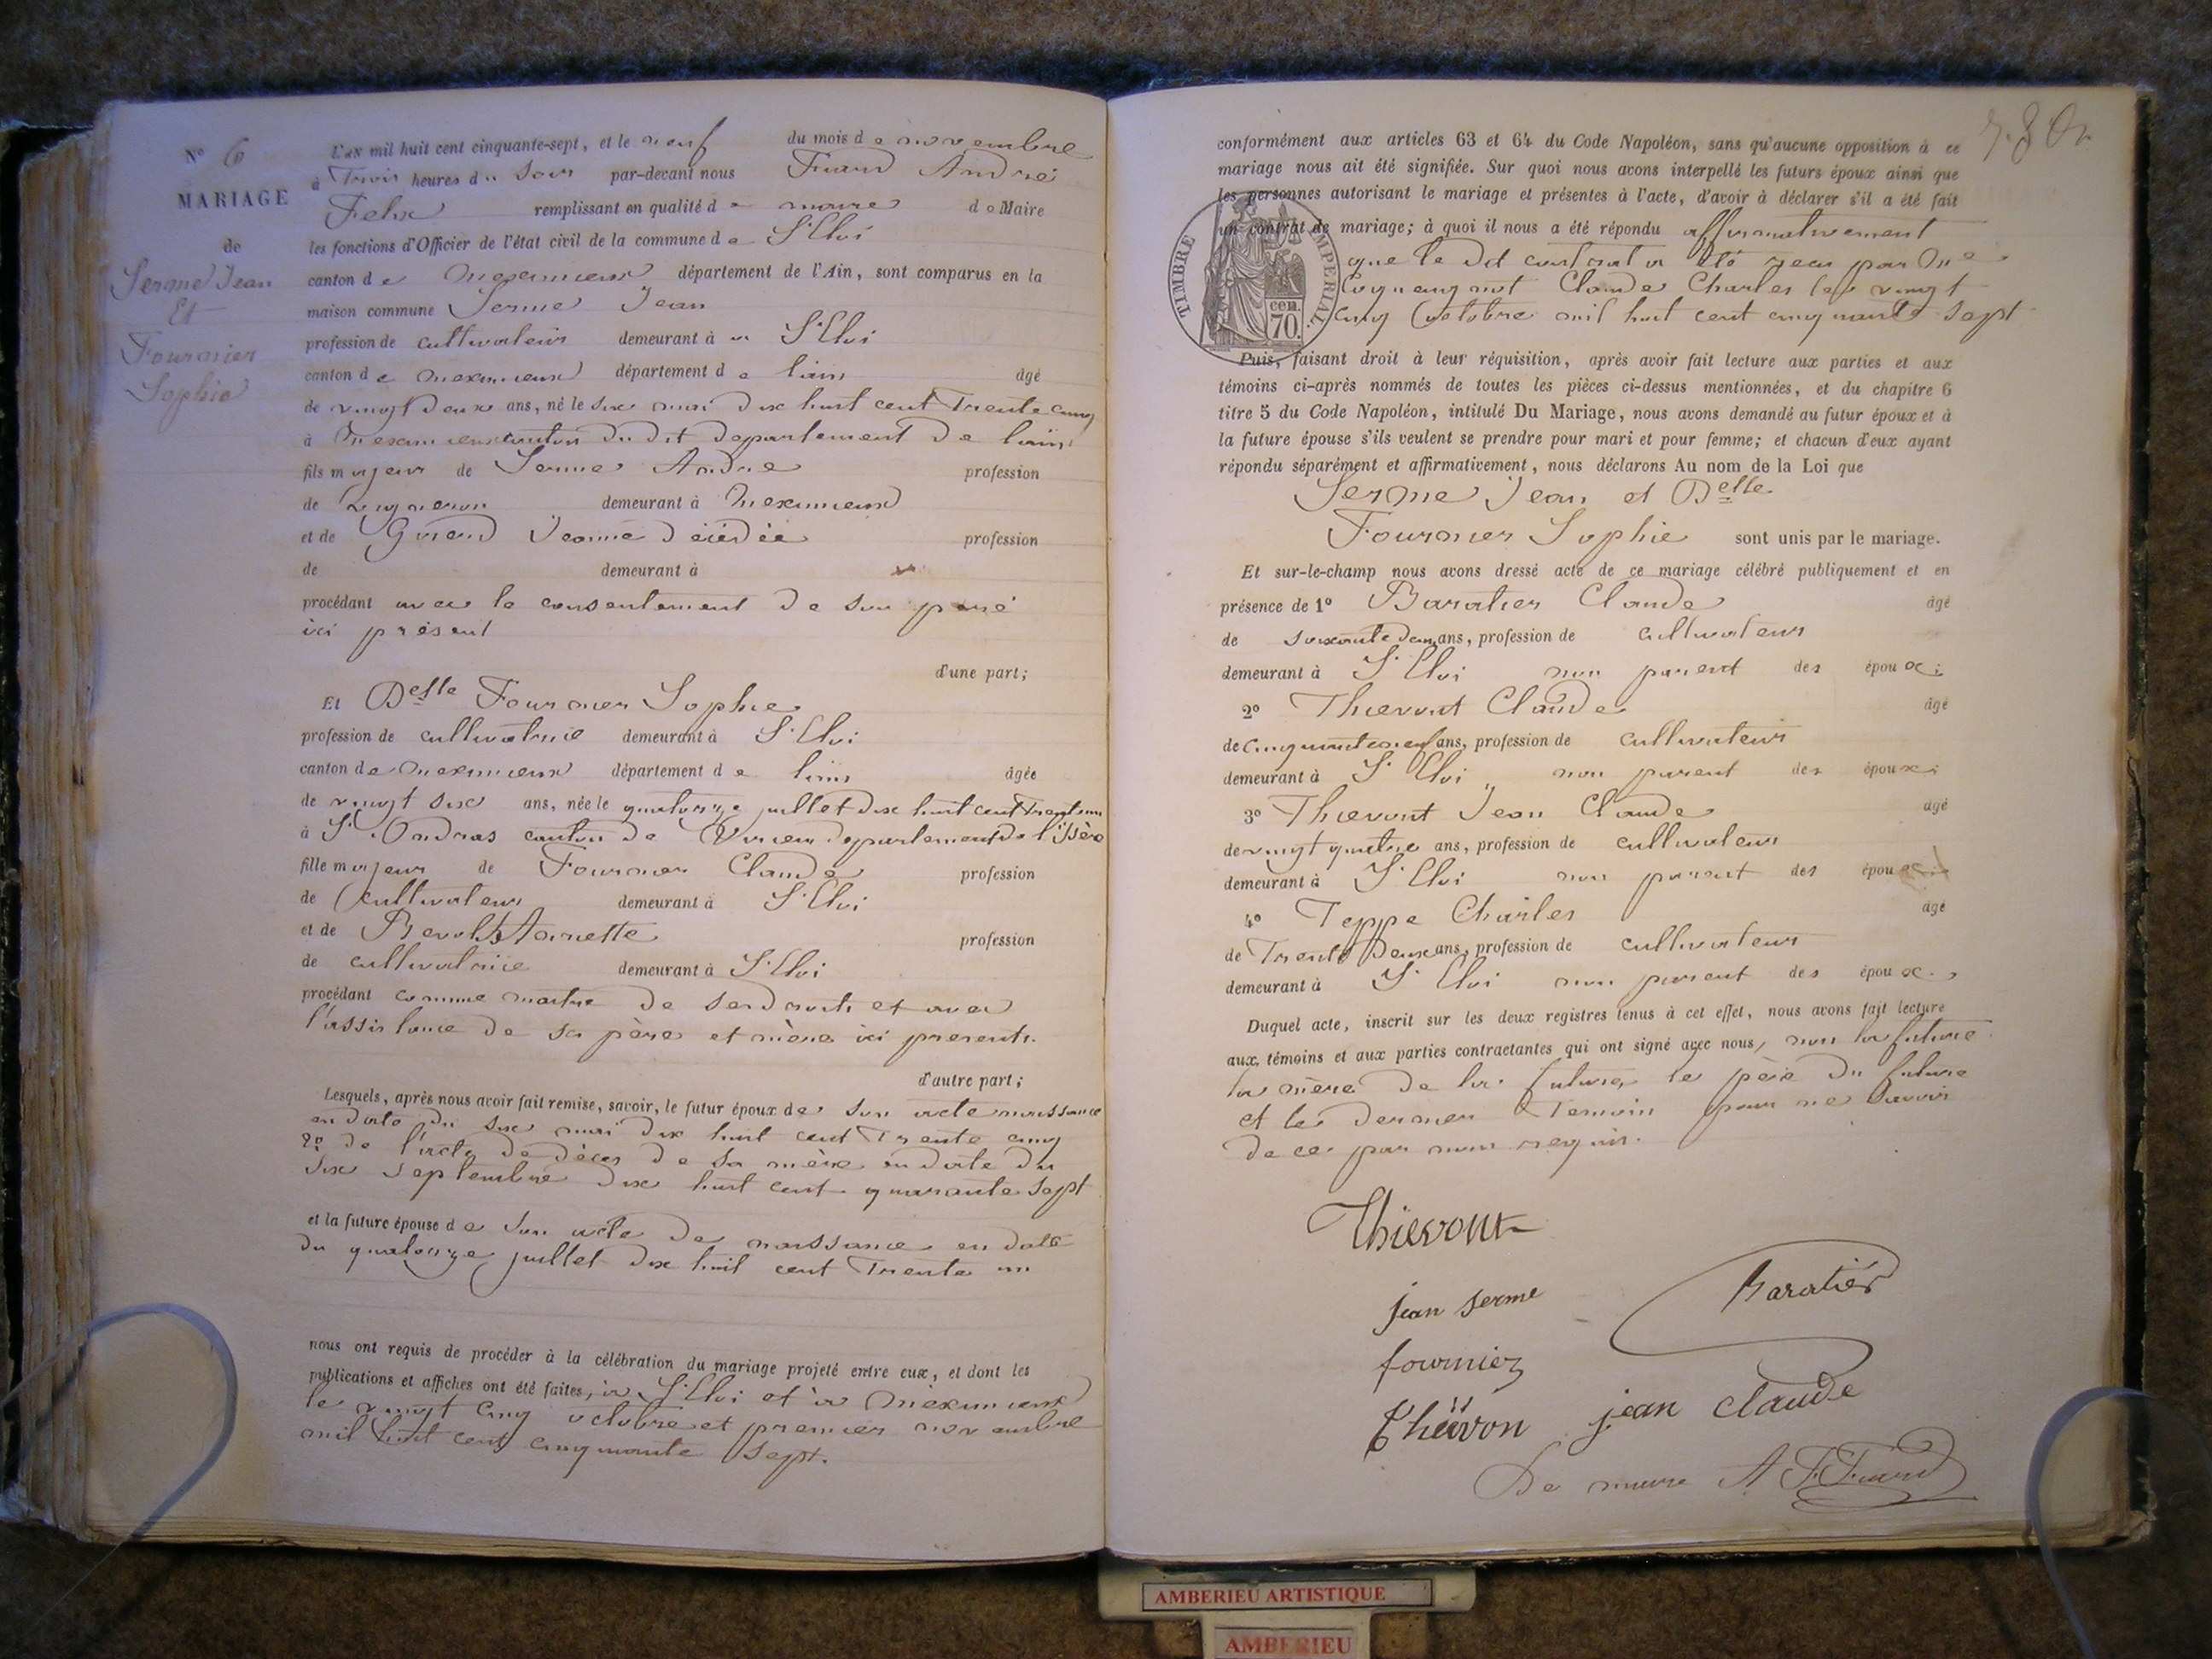 N° 6
MARIAGE
de
Serme Jean
Et
Fournier
Sophie
L'an mil huit cent cinquante-sept, et le neuf du mois de novembre
à Trois heures du Soir par-devant nous Fuard André
Felix remplissant en qualité de maire de Maire
les fonctions d'Officier de l'état civil de la commune de St Eloi
canton de meximieux département de l'Ain, sont comparus en la
maison commune Serme Jean
profession de cultivateur demeurant à a St Eloi
canton de meximieux département de lain âgé
de vingt deux ans, né le six mai dix huit cent Trente cinq
à meximieux canton du dit departement de lain
fils majeur de Serme Andre profession
de vigneron demeurant à Meximieux
et de Jeanne décédée profession
de demeurant à
procédant avec le consentement de son pere
ici présent
d'une part;
Et Delle Fournier Sophie
profession de cultivatrice demeurant à St Eloi
canton de meximieux département de lain âgée
de vingt six ans, née le quatorze juillet dix huit cent Trente un
à St Ondras canton de Virieu departement de l'Isère
fille majeur de Fournier Claude profession
de Cultivateur demeurant à St Eloi
et de Revol Antoinette profession
de cultivatrice demeurant à St Eloi
procédant comme maitre de ses droits et avec
l'assistance de ses père et mère ici presents.
d'autre part;
Lesquels, après nous avoir fait remise, savoir, le futur époux de son acte naissance
en date du six mai dix huit cent Trente cinq
2° de l'acte de décès de sa mère en date du
dix septembre dix huit cent quarante sept
et la future épouse de son acte de naissance en date
du quatorze juillet dix huit cent Trente un
nous ont requis de procéder à la célébration du mariage projeté entre eux, et dont les
publications et affiches ont été faites, à St Eloi et à Meximieux
le vingt cinq octobre et premier novembre
mil huit cent cinquante sept.
conformément aux articles 63 et 64 du Code Napoléon, sans qu'aucune opposition à ce
mariage nous ait été signifiée. Sur quoi nous avons interpellé les futurs époux ainsi que
les personnes autorisant le mariage et présentes à l'acte, d'avoir à déclarer s'il a été fait
un contrat de mariage; à quoi il nous a été répondu affirmativement
que le dit contrat a été recu par Me
Claude Charles le vingt
cinq Octobre mil huit cent cinquante sept
TIMBRE IMPERIAL
cen. 70.
Puis, faisant droit à leur réquisition, après avoir fait lecture aux parties et aux
témoins ci-après nommés de toutes les pièces ci-dessus mentionnées, et du chapitre 6
titre 5 du Code Napoléon, intitulé Du Mariage, nous avons demandé au futur époux et à
la future épouse s'ils veulent se prendre pour mari et pour femme; et chacun d'eux ayant
répondu séparément et affirmativement, nous déclarons Au nom de la Loi que
Serme Jean et Delle
Fournier Sophie sont unis par le mariage.
Et sur-le-champ nous avons dressé acte de ce mariage célébré publiquement et en
présence de 1° Baratier Claude âgé
de soixante deux ans, profession de cultivateur
demeurant à St Eloi non parent des époux;
2° Thievont Claude âgé
de cinquante neuf ans, profession de cultivateur
demeurant à St Eloi non parent des époux;
3° Thievont Jean Claude âgé
de vingt quatre ans, profession de cultivateur
demeurant à St Eloi non parent des époux;
4° Teppe Charles âgé
de Trente Deux ans, profession de cultivateur
demeurant à St Eloi non parent des époux.
Duquel acte, inscrit sur les deux registres tenus à cet effet, nous avons fait lecture
aux témoins et aux parties contractantes qui ont signé avec nous, non la future
la mère de la future, le père du future
et le dernier Temoin pour ne savoir
de ce par nous requis.
Thievont
jean serme
Baratier
fournier
Theivon jean claude
Le maire A F. Fuard
AMBERIEU ARTISTIQUE
AMBERIEU